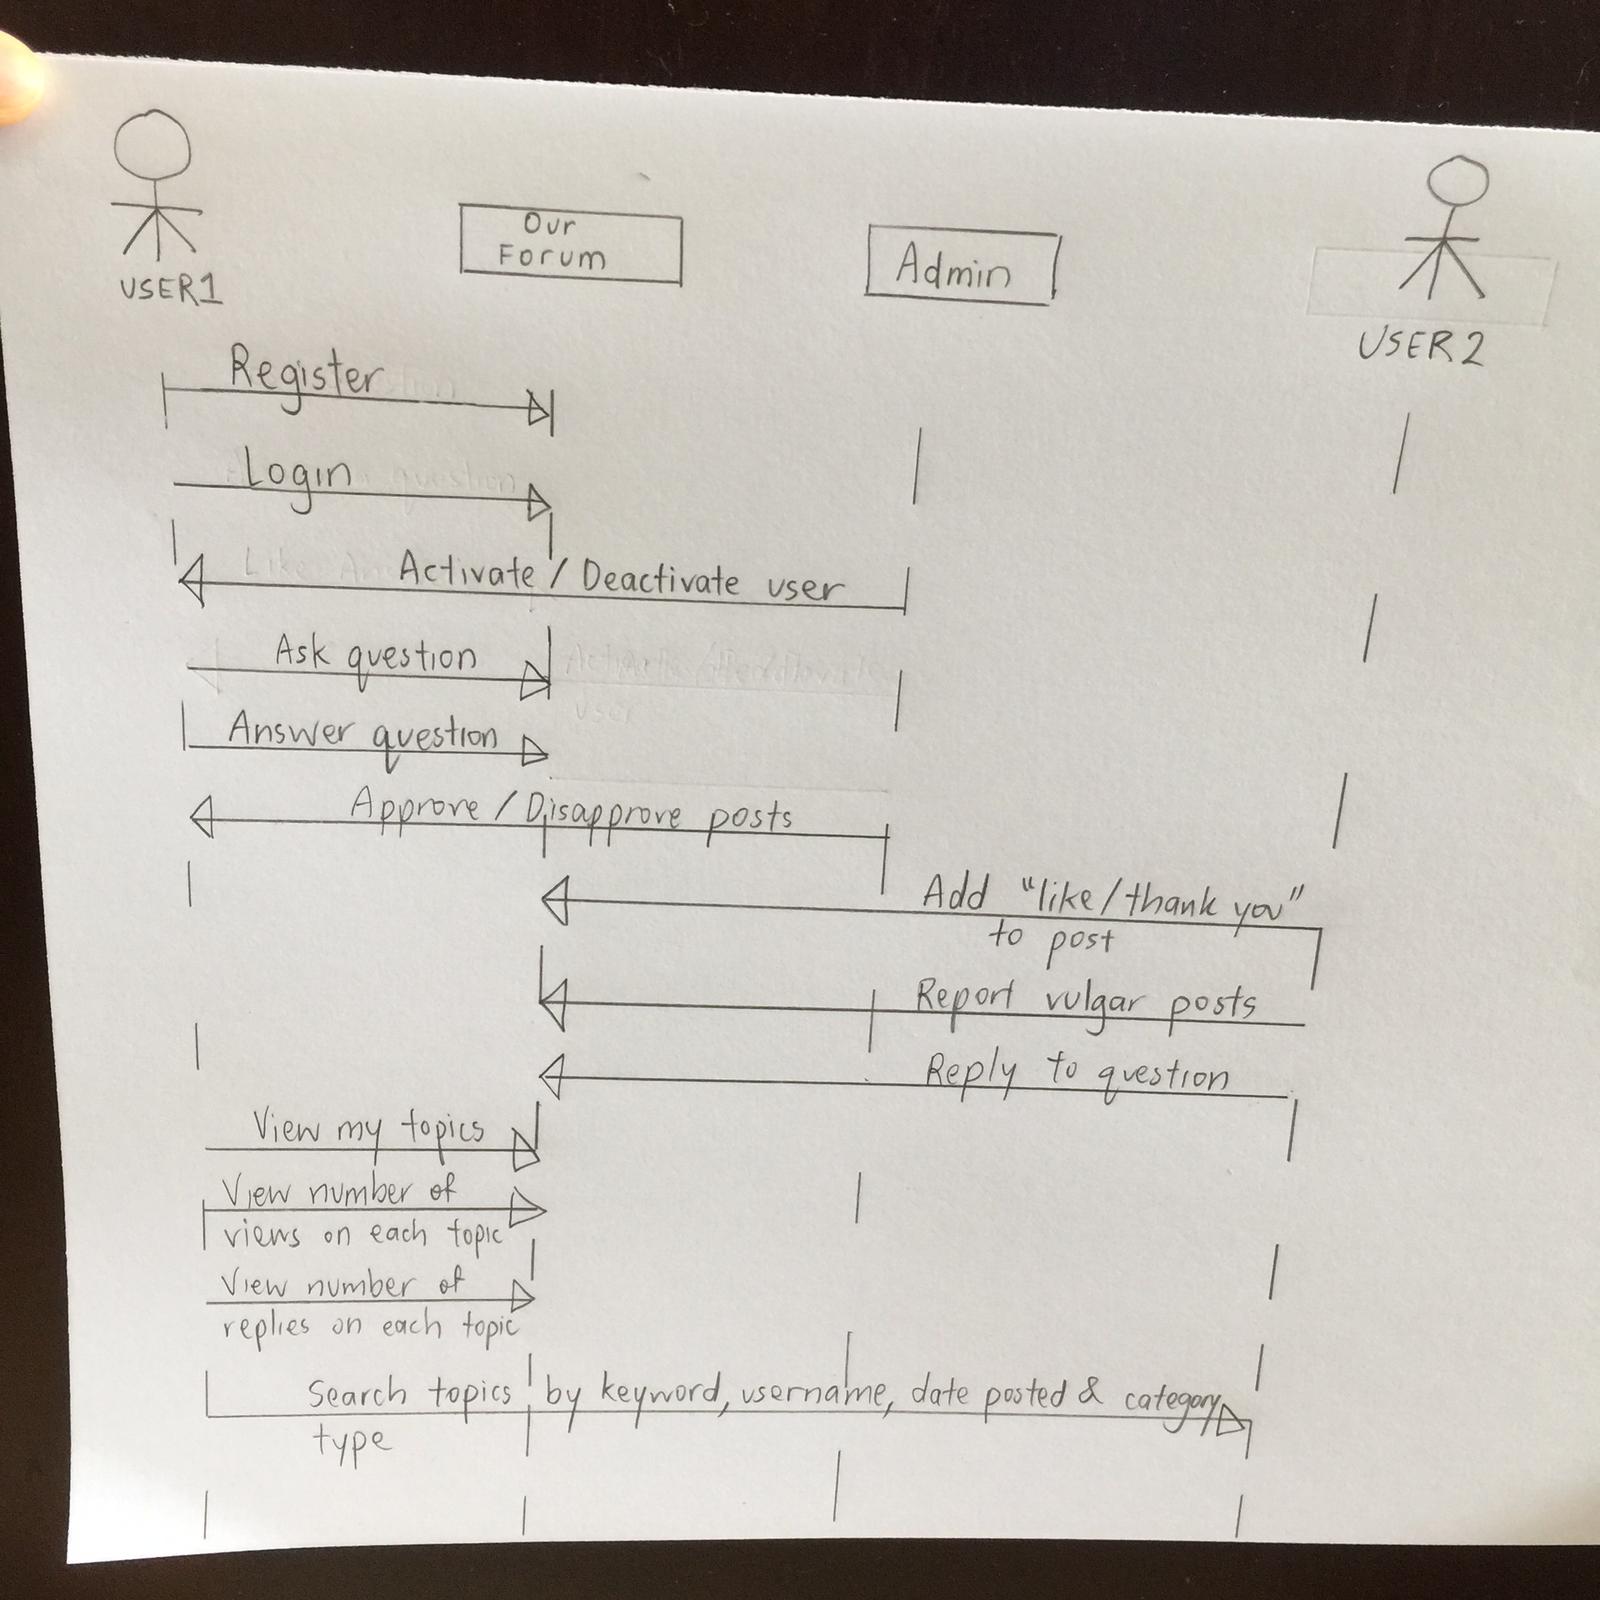 USER1
Our
Forum
Admin
USER2
Register
Login
Activate / Deactivate user
Ask question
Answer question
Approve / Disapprove posts
Add "like/thank you"
to post
Report vulgar posts
Reply to question
View my topics
View number of
views on each topic
View number of
replies on each topic
Search topics by keyword, username, date posted & category
type